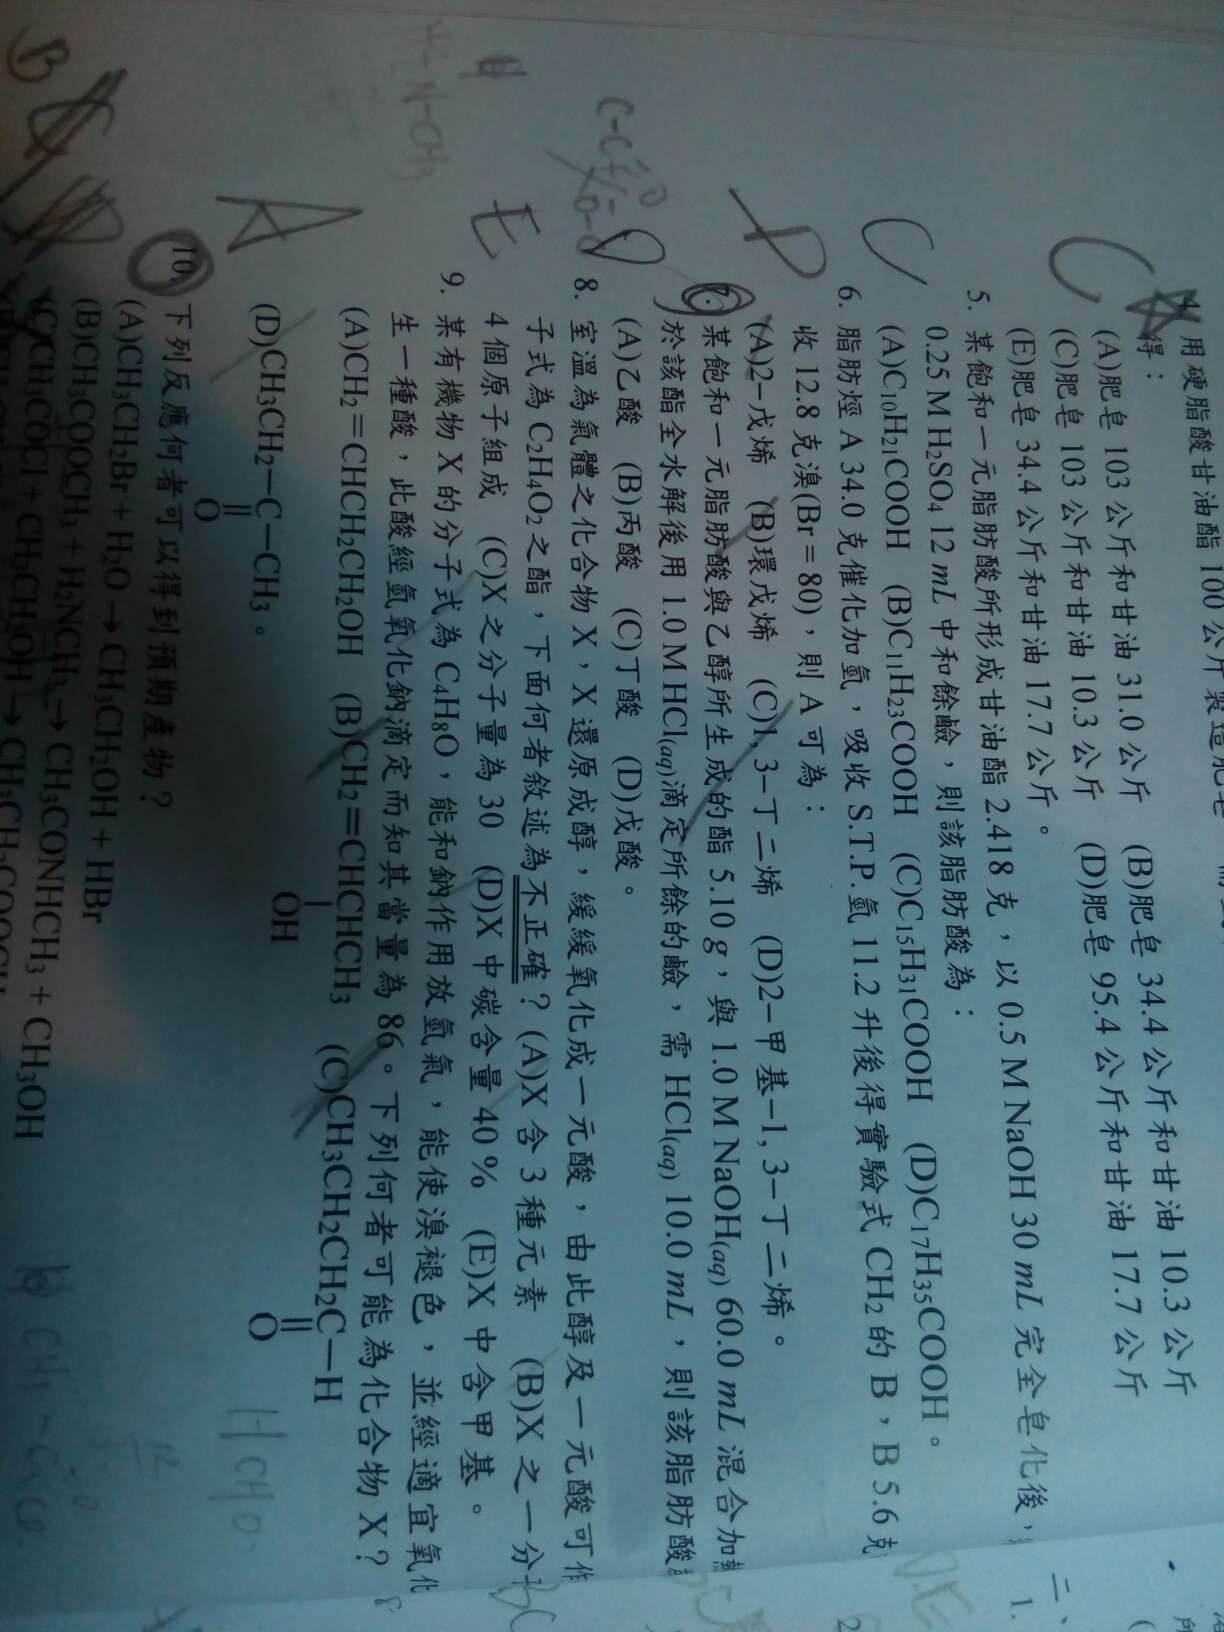 4. 用硬脂酸甘油酯 100 公斤製造肥皂
得：
(A)肥皂 103 公斤和甘油 31.0 公斤 (B)肥皂 34.4 公斤和甘油 10.3 公斤
(C)肥皂 103 公斤和甘油 10.3 公斤 (D)肥皂 95.4 公斤和甘油 17.7 公斤
(E)肥皂 34.4 公斤和甘油 17.7 公斤。
C
5. 某飽和一元脂肪酸所形成甘油酯 2.418 克，以 0.5 M NaOH 30 mL 完全皂化後，
0.25 M H₂SO₄ 12 mL 中和餘鹼，則該脂肪酸為：
(A)C₁₀H₂₁COOH (B)C₁₁H₂₃COOH (C)C₁₅H₃₁COOH (D)C₁₇H₃₅COOH。
C
6. 脂肪烴 A 34.0 克催化加氫，吸收 S.T.P.氫 11.2 升後得實驗式 CH₂ 的 B，B 5.6 克
收 12.8 克溴(Br = 80)，則 A 可為：
(A)2－戊烯 (B)環戊烯 (C)1, 3－丁二烯 (D)2－甲基－1, 3－丁二烯。
D
7. 某飽和一元脂肪酸與乙醇所生成的酯 5.10 g，與 1.0 M NaOH(aq) 60.0 mL 混合加熱
於該酯全水解後用 1.0 M HCl(aq)滴定所餘的鹼，需 HCl(aq) 10.0 mL，則該脂肪酸
(A)乙酸 (B)丙酸 (C)丁酸 (D)戊酸。
D
8. 室溫為氣體之化合物 X，X 還原成醇，緩緩氧化成一元酸，由此醇及一元酸可作
子式為 C₂H₄O₂ 之酯，下面何者敘述為不正確？(A)X 含 3 種元素 (B)X 之一分
4 個原子組成 (C)X 之分子量為 30 (D)X 中碳含量 40 % (E)X 中含甲基。
E
9. 某有機物 X 的分子式為 C₄H₈O，能和鈉作用放氫氣，能使溴褪色，並經適宜氧化
生一種酸，此酸經氫氧化鈉滴定而知其當量為 86。下列何者可能為化合物 X？
(A)CH₂＝CHCH₂CH₂OH (B)CH₂＝CHCHCH₃ (C)CH₃CH₂CH₂C－H
OH O
(D)CH₃CH₂－C－CH₃。
O
A
HCHO
10. 下列反應何者可以得到預期產物？
(A)CH₃CH₂Br + H₂O → CH₃CH₂OH + HBr
(B)CH₃COOCH₃ + H₂NCH₃ → CH₃CONHCH₃ + CH₃OH
(C)CH₃COCl + CH₃CH₂OH →
B